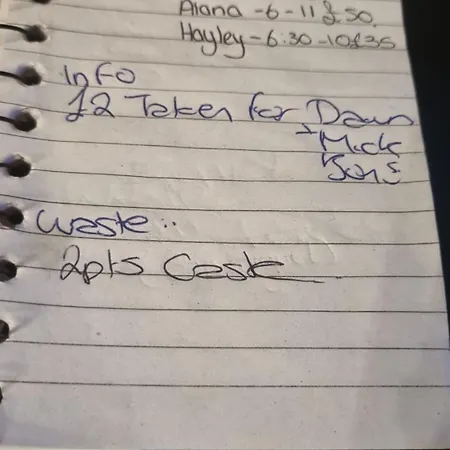 Alana - 6 - 11 £50
Hayley - 6:30 - 10 £35
Info
£2 Taken for Dawn
+ Mick
Sons
Waste..
2pts Cask